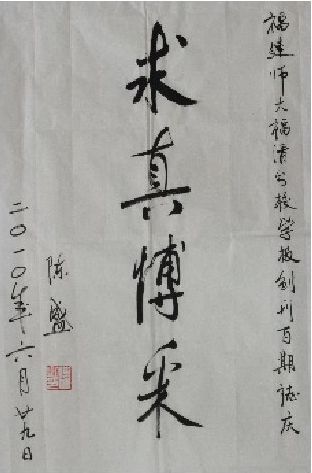 福建师大福清分校学报创刊百期志庆
求真博采
陈盛
二〇一〇年六月廿九日